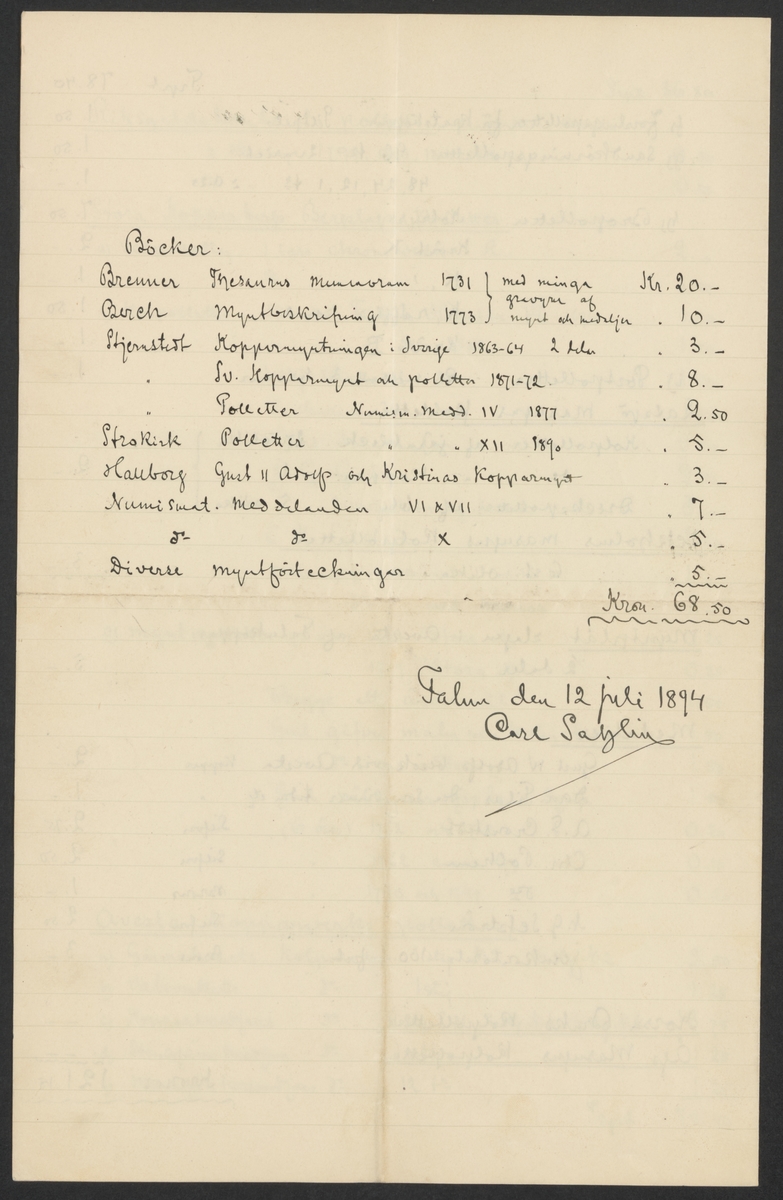 Böcker:
Brenner Thesaurus Nummorum 1731 } med många Kr. 20.–
gravyrer af
Berch Myntbeskrifning 1773 } mynt och medeljer . 10.–
Stjernstedt Kopparmyntningen i Sverige 1863-64 2 delar . 3.–
" Sv. Kopparmynt och polletter 1871-72. . 8.–
" Polletter Numism. Medd. IV 1877 . 2.50
Strokirk Polletter " " XII 1890 . 5.–
Hallborg Gust II Adolfs och Kristinas Kopparmynt . 3.–
Numismat. Meddelanden VI & VII . 7.–
do do X . 5.–
Diverse myntförteckningar . 5.–
Kron. 68.50
Falun den 12 juli 1894
Carl Sahlin